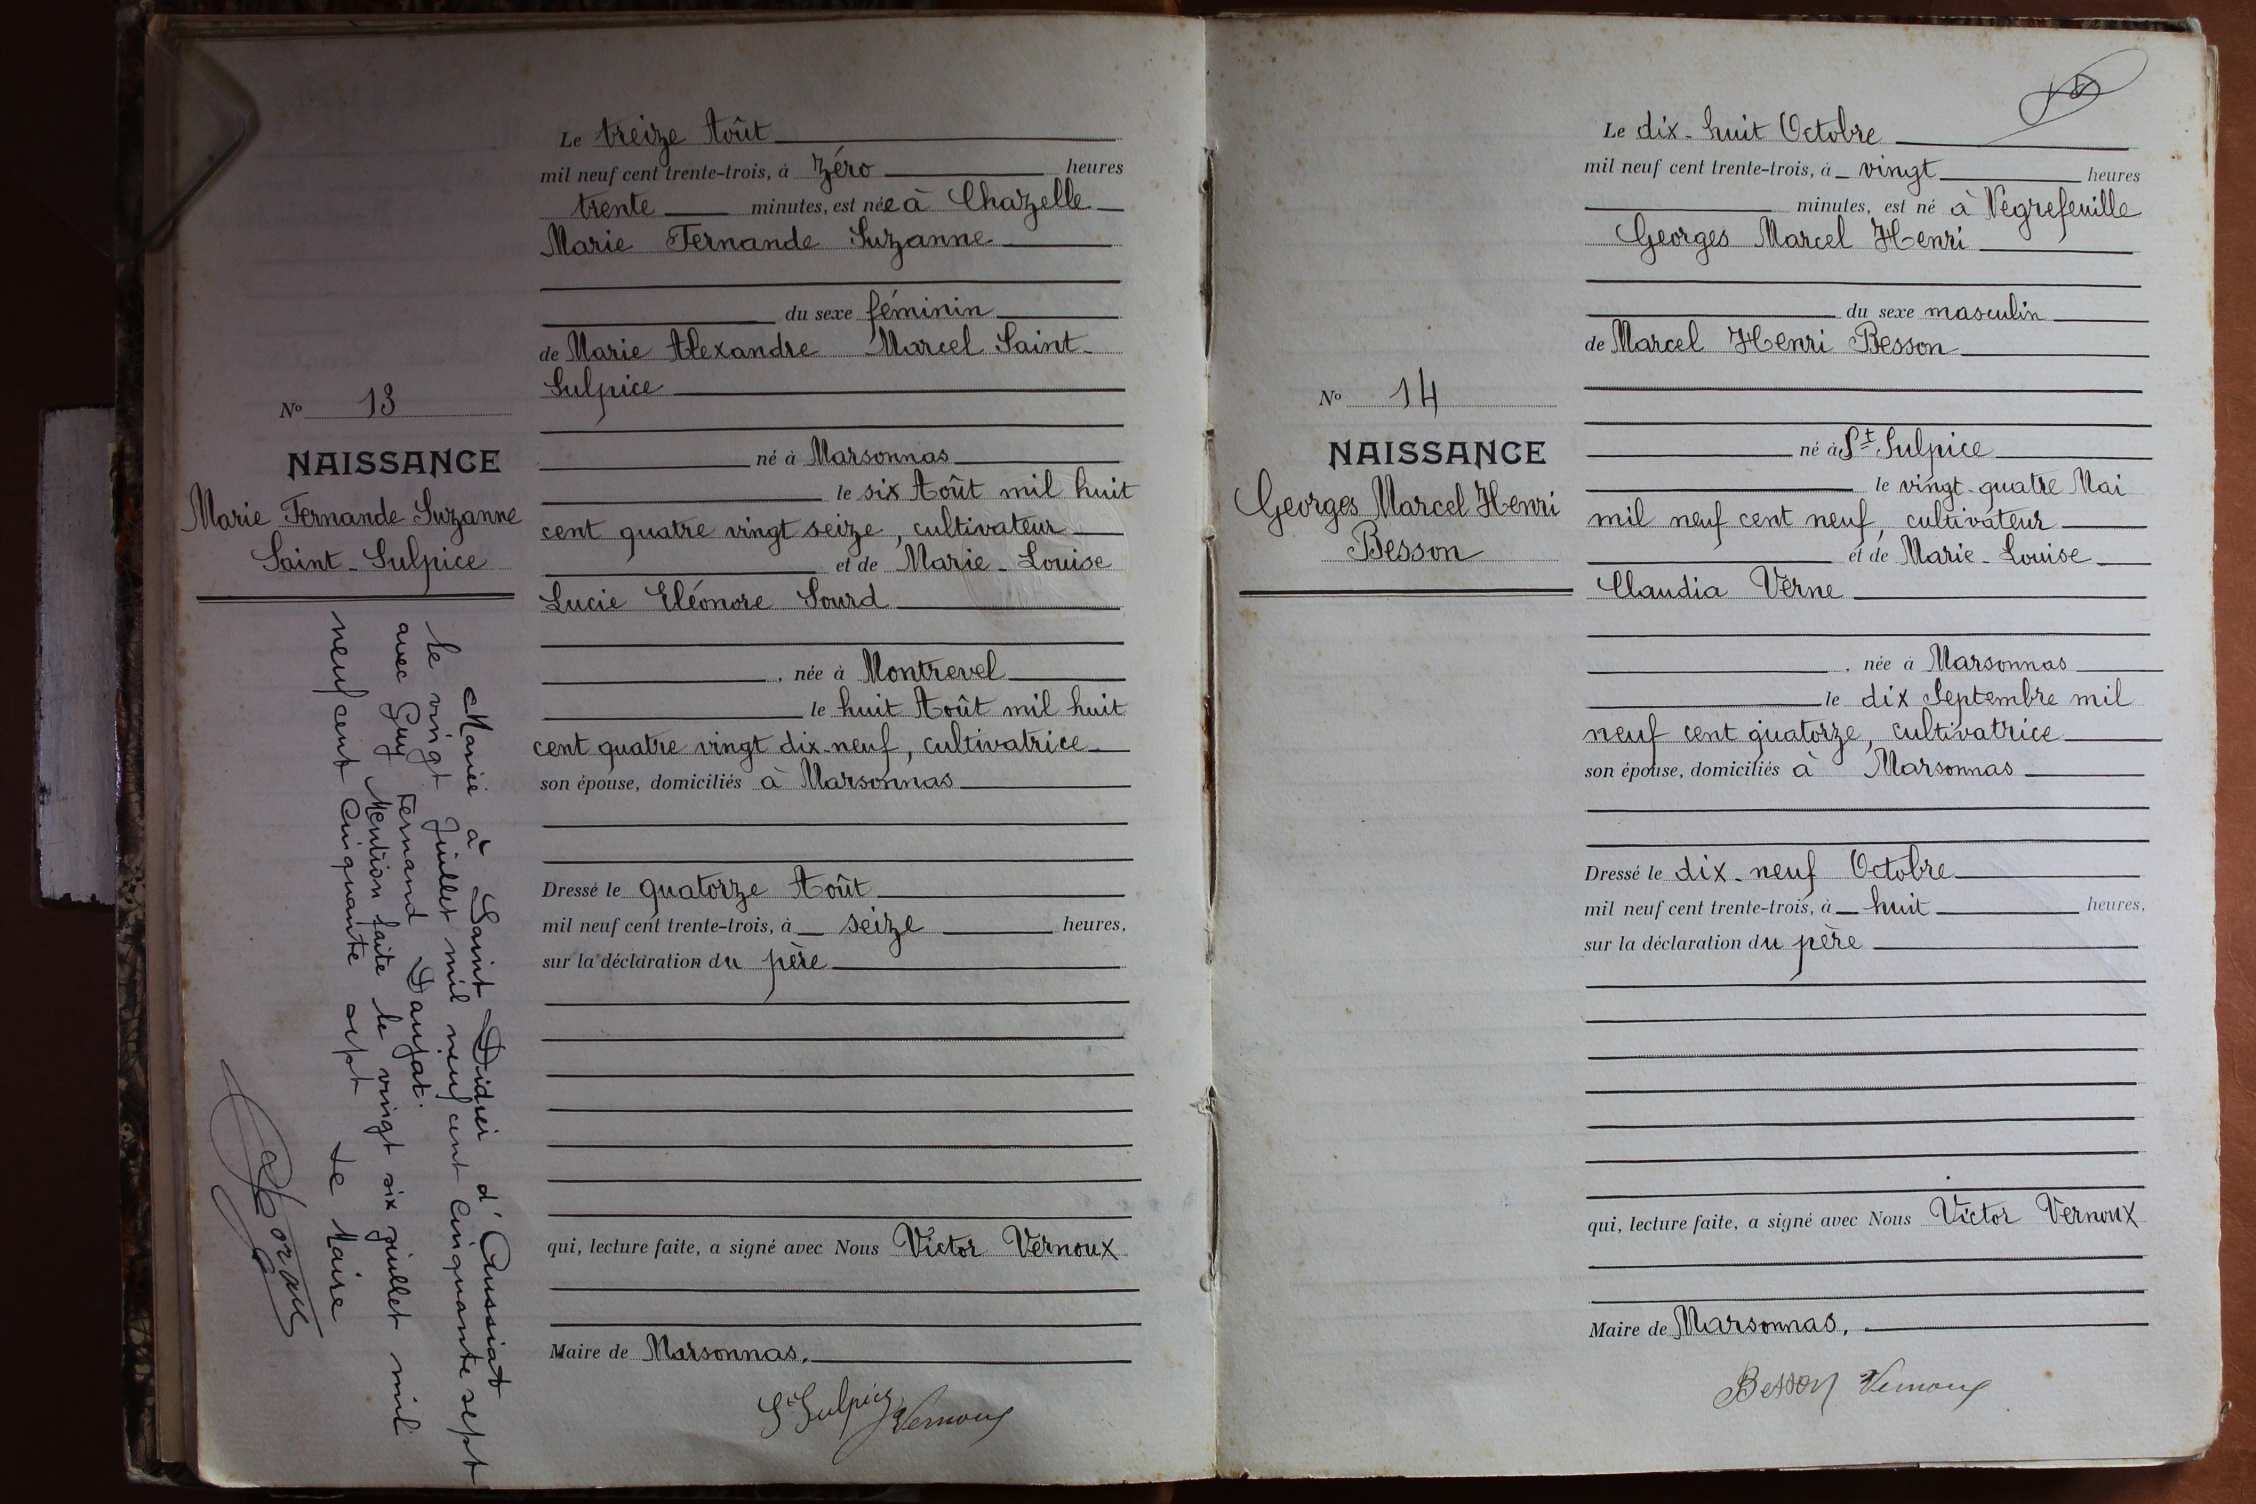 Le treize Août
mil neuf cent trente-trois, à zéro heures
trente minutes, est née à Chazelle
Marie Fernande Suzanne
du sexe féminin
de Marie Alexandre Marcel Saint-
Sulpice
né à Marsonnas
le six Août mil huit
cent quatre vingt seize, cultivateur
et de Marie-Louise
Lucie Eléonore Sourd
, née à Montrevel
le huit Août mil huit
cent quatre vingt dix-neuf, cultivatrice
son épouse, domiciliés à Marsonnas
Dressé le quatorze Août
mil neuf cent trente-trois, à seize heures,
sur la déclaration du père
qui, lecture faite, a signé avec Nous Victor Vernoux
Maire de Marsonnas.
St Sulpice Vernoux
No 13
NAISSANCE
Marie Fernande Suzanne
Saint-Sulpice
Mariée à Saint Didier d'Aussiat
le vingt Juillet mil neuf cent cinquante sept
avec Guy Fernand Daujat.
Mention faite le vingt six juillet mil
neuf cent cinquante sept Le Maire
Le dix-huit Octobre
mil neuf cent trente-trois, à vingt heures
minutes, est né à Vegrefeuille
Georges Marcel Henri
du sexe masculin
de Marcel Henri Besson
né à St Sulpice
le vingt-quatre Mai
mil neuf cent neuf, cultivateur
et de Marie-Louise
Claudia Verne
, née à Marsonnas
le dix Septembre mil
neuf cent quatorze, cultivatrice
son épouse, domiciliés à Marsonnas
Dressé le dix-neuf Octobre
mil neuf cent trente-trois, à huit heures,
sur la déclaration du père
qui, lecture faite, a signé avec Nous Victor Vernoux
Maire de Marsonnas.
Besson Vernoux
No 14
NAISSANCE
Georges Marcel Henri
Besson